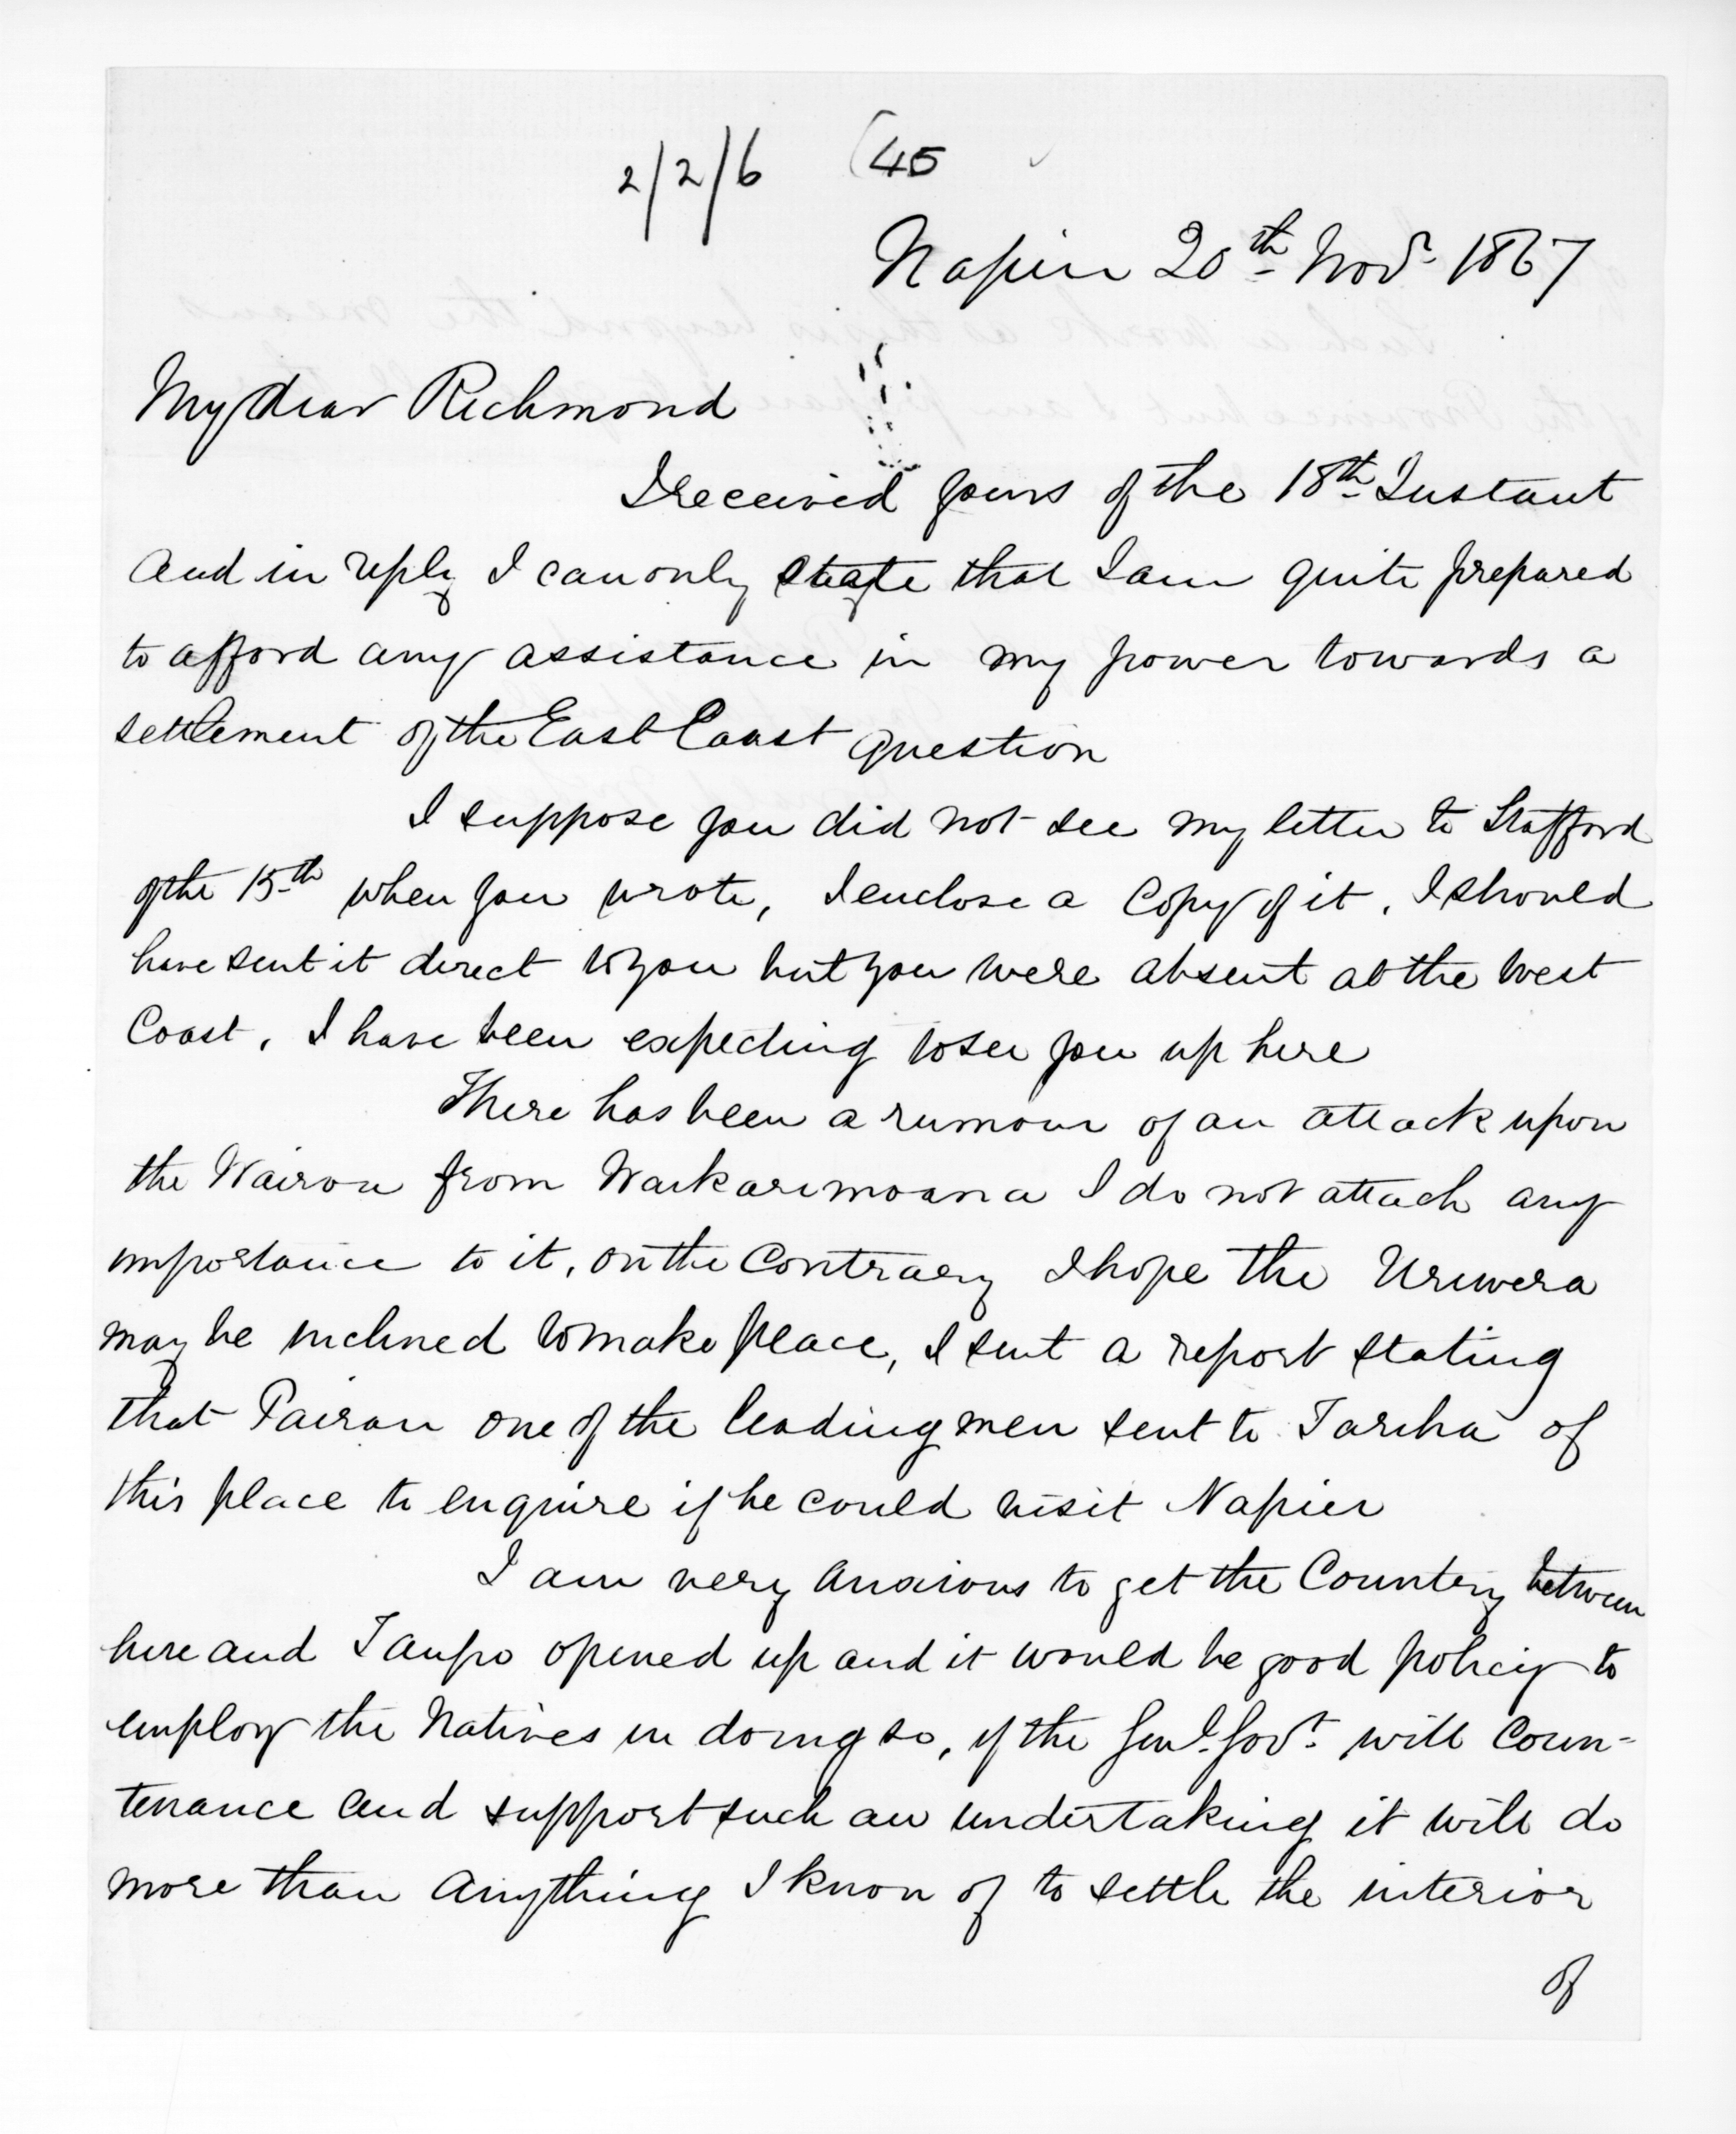 2/2/6 (45
Napier 20th Novr. 1867
My dear Richmond
I received yours of the 18th Instant
and in reply I can only state that I am quite prepared
to afford any assistance in my power towards a
settlement of the East Coast question
I suppose you did not see my letter to Stafford
of the 15th when you wrote, I enclose a copy of it. I should
have sent it direct to you but you were absent at the West
Coast. I have been expecting to see you up here
There has been a rumour of an attack upon
the Wairoa from Waikaremoana I do not attach any
importance to it, on the contrary I hope the Urewera
may be inclined to make peace, I sent a report stating
that Pairau one of the leading men sent to Tareha of
this place to enquire if he could visit Napier
I am very anxious to get the Country between
here and Taupo opened up and it would be good policy to
employ the Natives in doing so, if the Genl. Govt. will coun-
tenance and support such an undertaking it will do
more than anything I know of to settle the interior
of